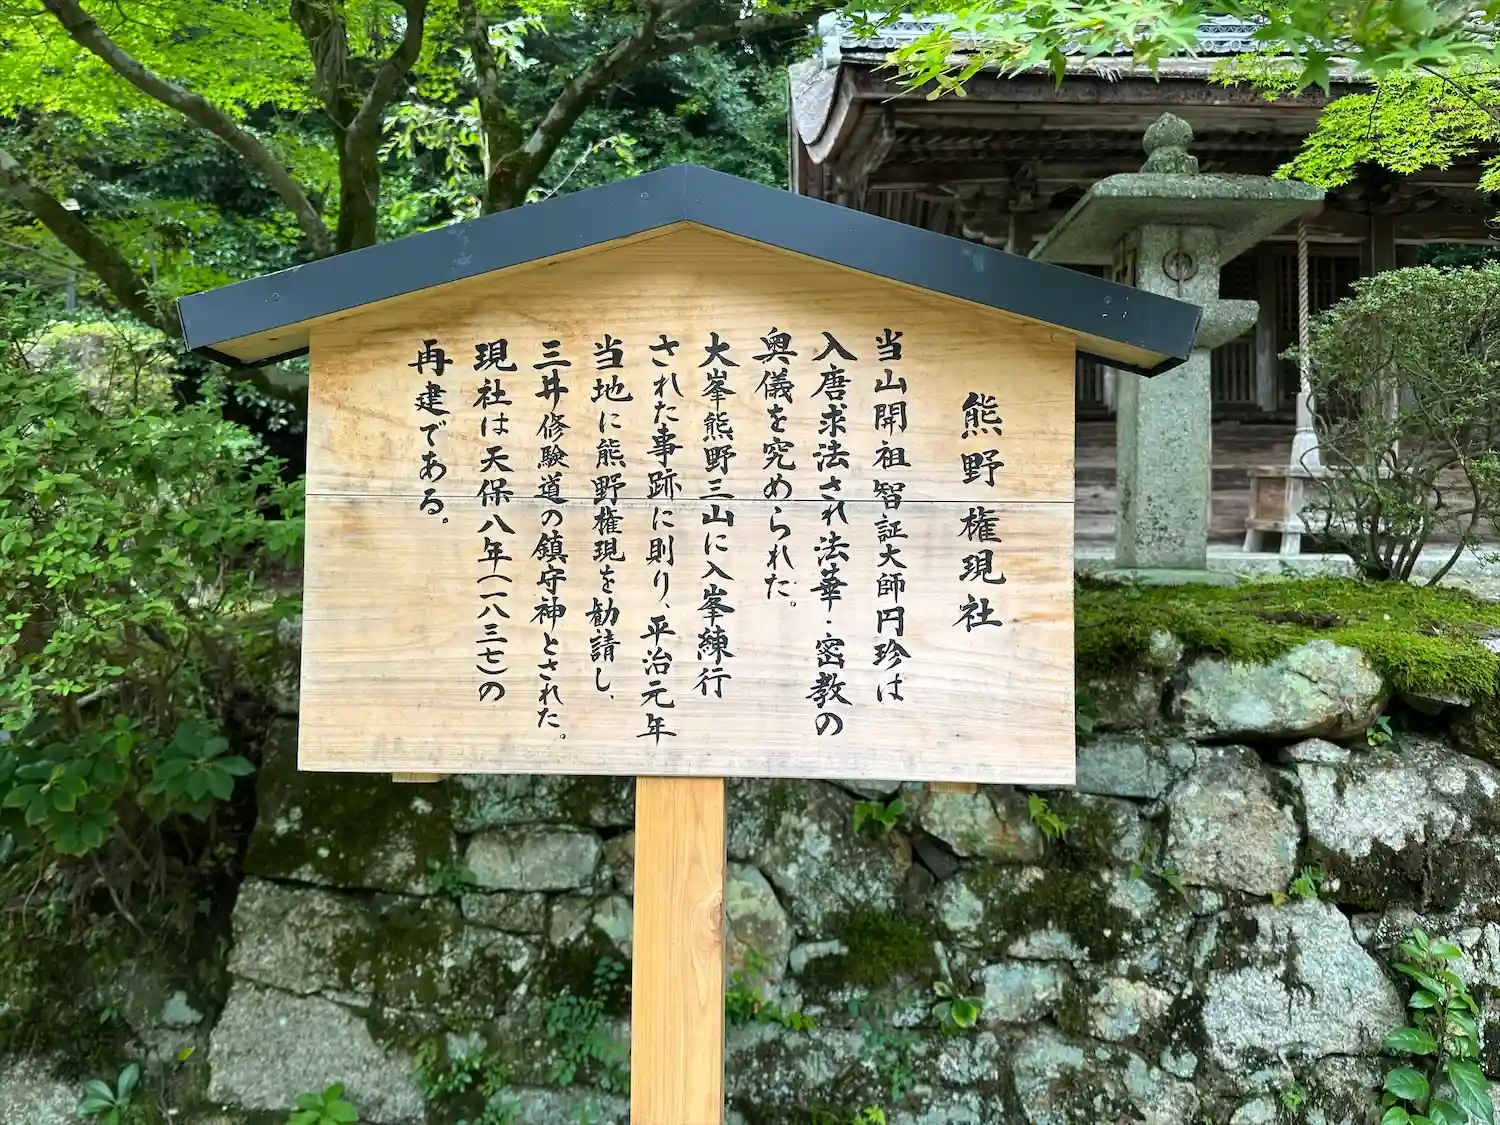 熊野権現社
当山開祖智証大師円珍は
入唐求法され法華・密教の
奥儀を究められた。
大峯熊野三山に入峯練行
された事跡に則り、平治元年
当地に熊野権現を勧請し、
三井修験道の鎮守神とされた。
現社は天保八年（一八三七）の
再建である。